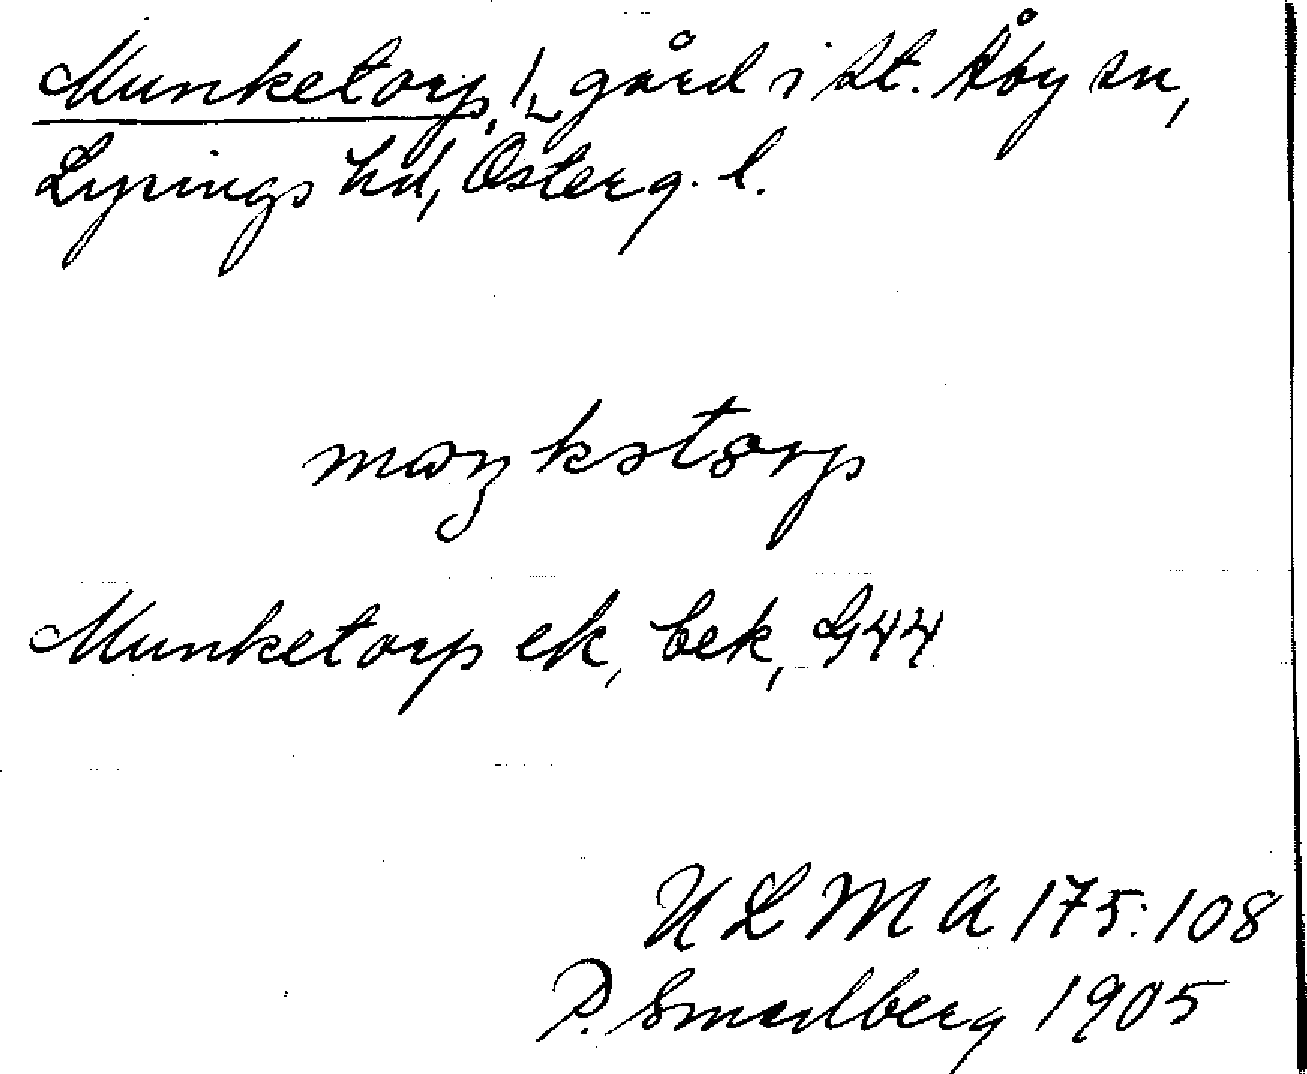 Munketorp, 1/4 gård i St. Åby sn,
Lysings hd, Österg. l.
maŋkstorp
Munketorp ek, bek, G44
ULMA 175:108
P. Smedberg 1905